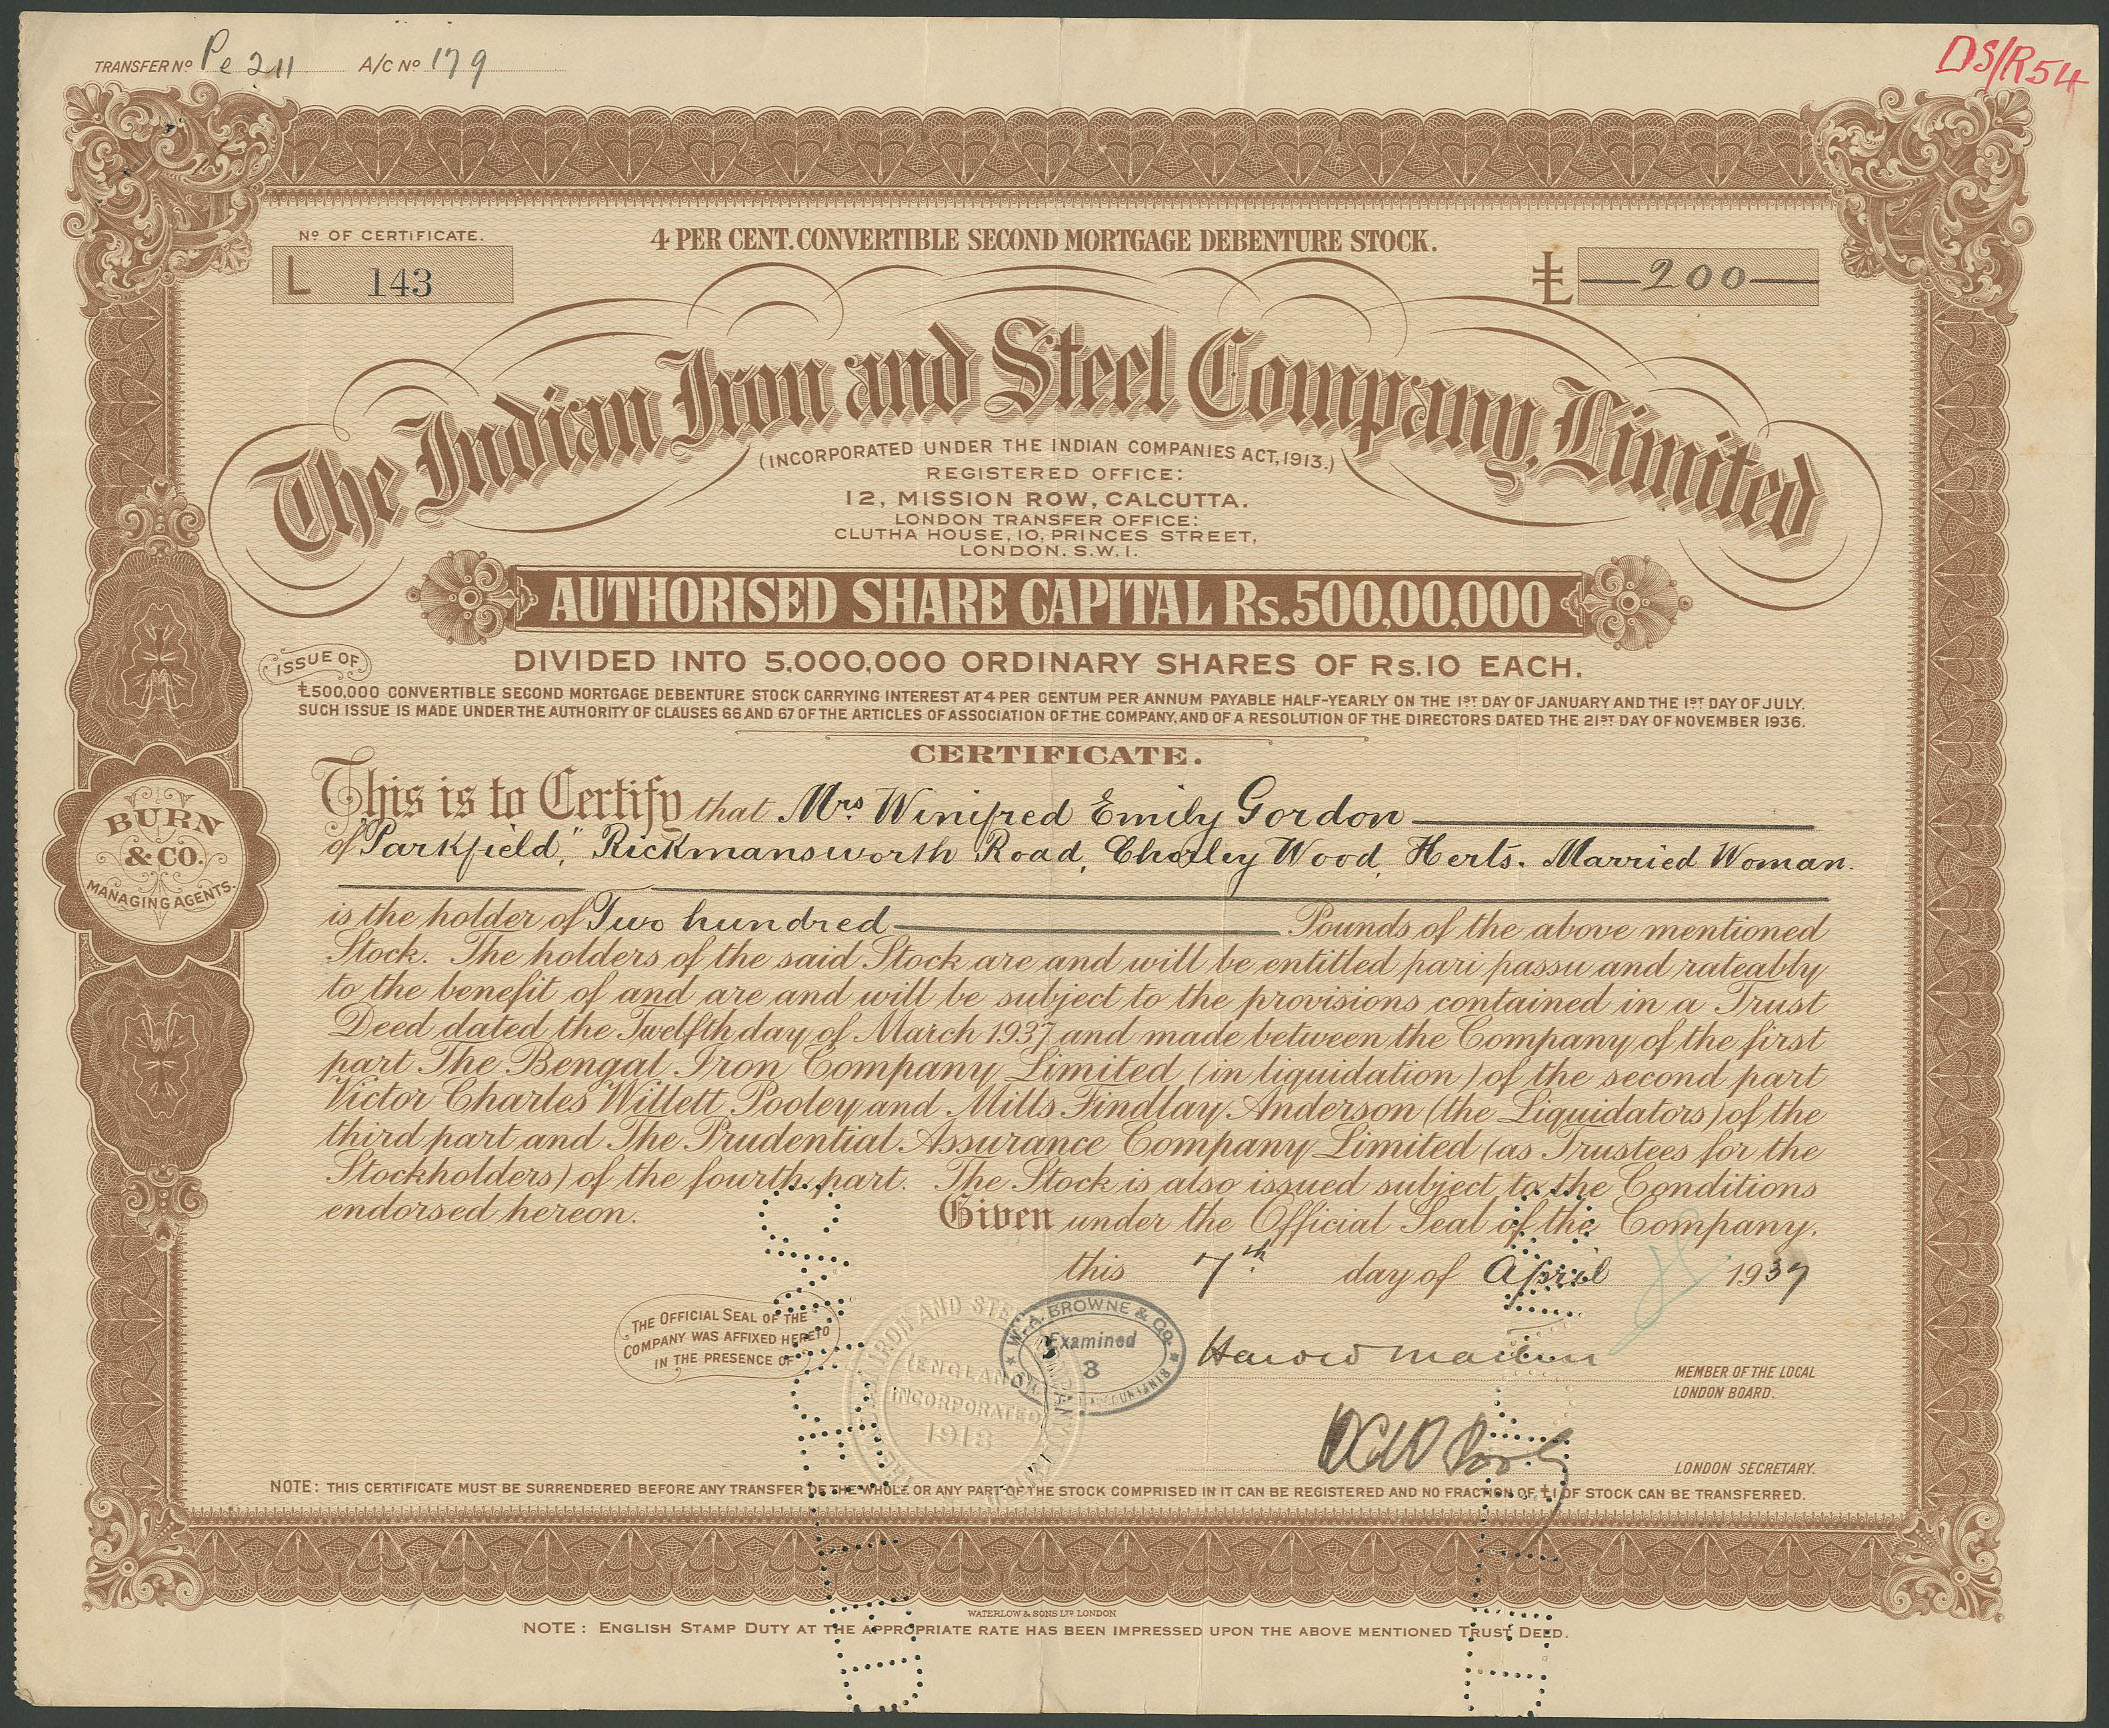 TRANSFER Nº Pe 211 A/C Nº 179
DS/R54
Nº OF CERTIFICATE.
L 143
4 PER CENT. CONVERTIBLE SECOND MORTGAGE DEBENTURE STOCK.
£ 200
The Indian Iron and Steel Company, Limited
(INCORPORATED UNDER THE INDIAN COMPANIES ACT, 1913.)
REGISTERED OFFICE:
12, MISSION ROW, CALCUTTA.
LONDON TRANSFER OFFICE:
CLUTHA HOUSE, 10, PRINCES STREET,
LONDON. S.W.1.
AUTHORISED SHARE CAPITAL Rs.500,00,000
DIVIDED INTO 5,000,000 ORDINARY SHARES OF Rs.10 EACH.
ISSUE OF
£500,000 CONVERTIBLE SECOND MORTGAGE DEBENTURE STOCK CARRYING INTEREST AT 4 PER CENTUM PER ANNUM PAYABLE HALF-YEARLY ON THE 1ST DAY OF JANUARY AND THE 1ST DAY OF JULY.
SUCH ISSUE IS MADE UNDER THE AUTHORITY OF CLAUSES 66 AND 67 OF THE ARTICLES OF ASSOCIATION OF THE COMPANY, AND OF A RESOLUTION OF THE DIRECTORS DATED THE 21ST DAY OF NOVEMBER 1936.
CERTIFICATE.
This is to Certify that Mrs Winifred Emily Gordon
of "Parkfield," Rickmansworth Road, Chorley Wood, Herts. Married Woman.
is the holder of Two hundred Pounds of the above mentioned
Stock. The holders of the said Stock are and will be entitled pari passu and rateably
to the benefit of and are and will be subject to the provisions contained in a Trust
Deed dated the Twelfth day of March 1937 and made between the Company of the first
part The Bengal Iron Company Limited (in liquidation) of the second part
Victor Charles Willett Pooley and Mills Findlay Anderson (the Liquidators) of the
third part and The Prudential Assurance Company Limited (as Trustees for the
Stockholders) of the fourth part. The Stock is also issued subject to the Conditions
endorsed hereon. Given under the Official Seal of the Company.
this 7th day of April 1937
BURN
& CO.
MANAGING AGENTS.
THE OFFICIAL SEAL OF THE
COMPANY WAS AFFIXED HERETO
IN THE PRESENCE OF
IRON AND STEEL
(ENGLAND)
INCORPORATED
1918
W. A. BROWNE & CO.
Examined
3
Harold
MEMBER OF THE LOCAL
LONDON BOARD.
LONDON SECRETARY.
NOTE: THIS CERTIFICATE MUST BE SURRENDERED BEFORE ANY TRANSFER OF THE WHOLE OR ANY PART OF THE STOCK COMPRISED IN IT CAN BE REGISTERED AND NO FRACTION OF £1 OF STOCK CAN BE TRANSFERRED.
WATERLOW & SONS LTD LONDON
NOTE: ENGLISH STAMP DUTY AT THE APPROPRIATE RATE HAS BEEN IMPRESSED UPON THE ABOVE MENTIONED TRUST DEED.